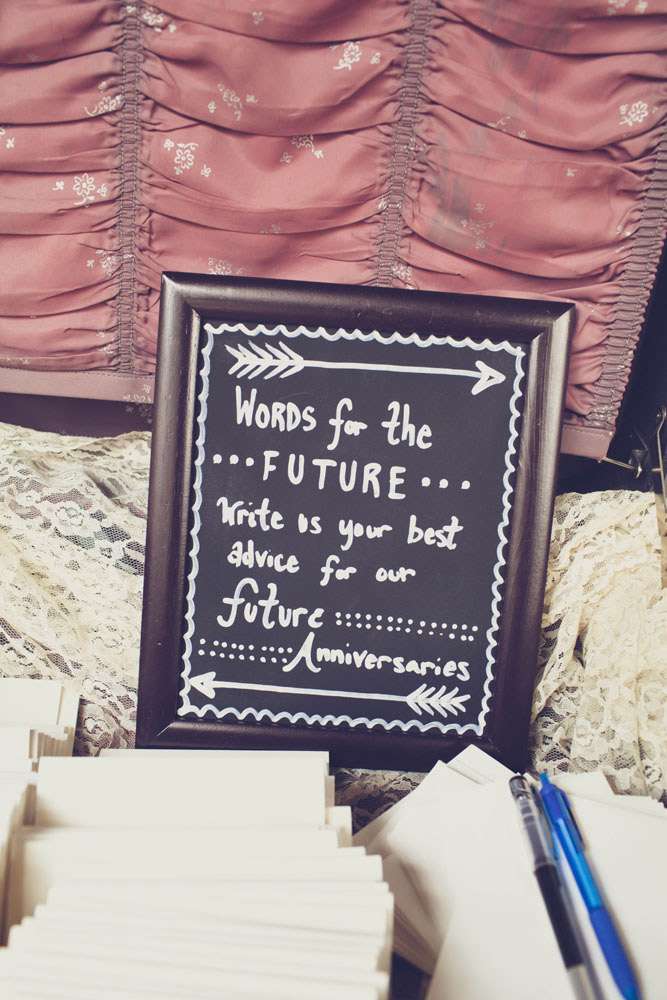 WORDS for the
...FUTURE...
Write us your best
advice for our
future
Anniversaries